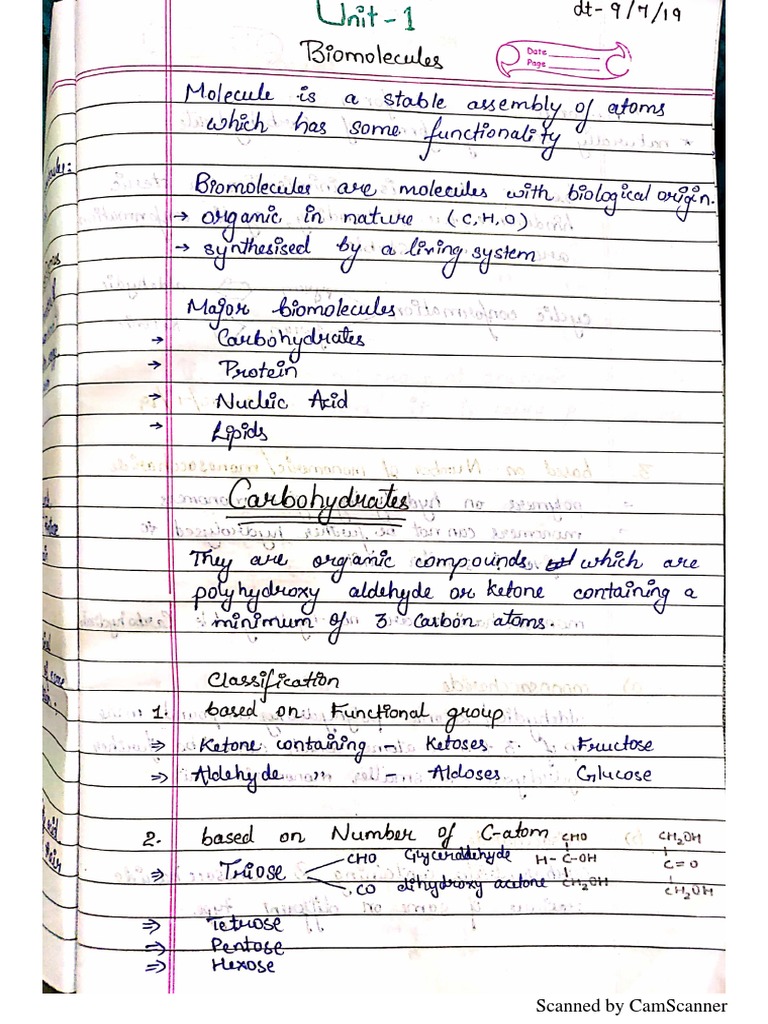 Unit-1
dt- 9/7/19
Biomolecules
Date
Page
Molecule is a stable assembly of atoms
which has some functionality
Biomolecules are molecules with biological origin.
→ organic in nature (C,H,O)
→ synthesised by a living system
Major biomolecules
→ Carbohydrates
→ Protein
→ Nucleic Acid
→ Lipids
Carbohydrates
They are organic compounds which are
polyhydroxy aldehyde or ketone containing a
minimum of 3 Carbon atoms.
Classification
1. based on Functional group
⇒ Ketone containing - Ketoses Fructose
⇒ Aldehyde " - Aldoses Glucose
2. based on Number of C-atom
⇒ Triose
CHO Glyceraldehyde
CO dihydroxy acetone
CHO
H-C-OH
CH2OH
CH2OH
C=O
CH2OH
⇒ Tetrose
⇒ Pentose
⇒ Hexose
Scanned by CamScanner